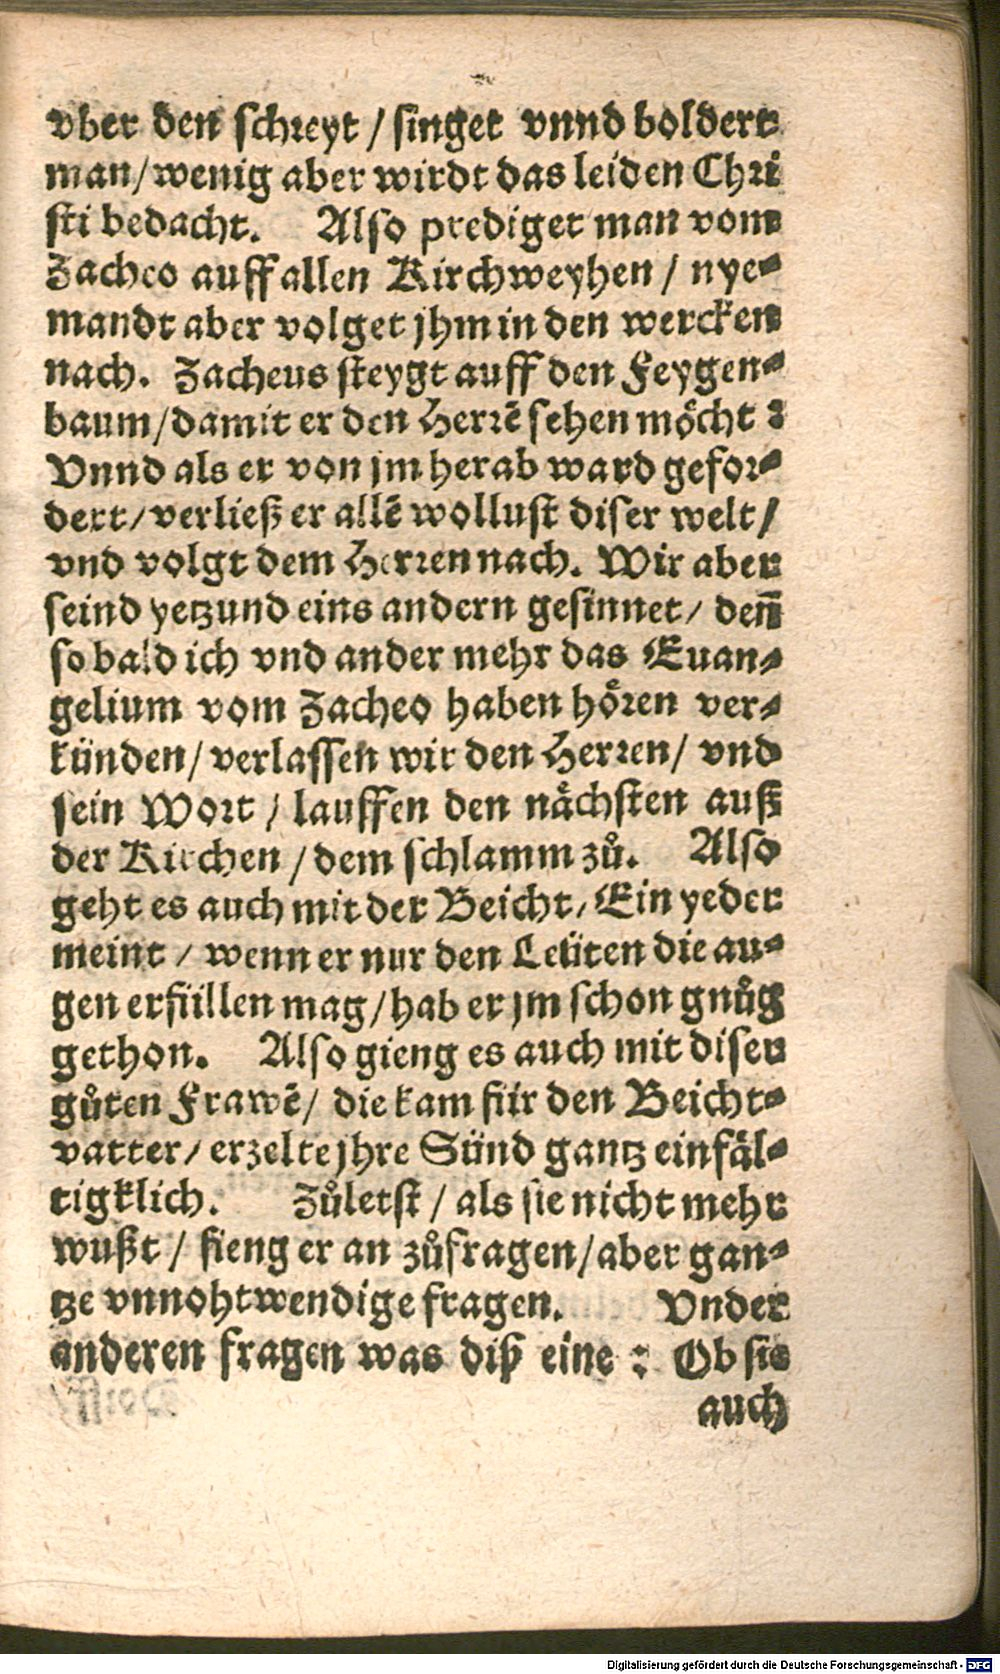 vber den schreyt / singet vnnd boldert
man / wenig aber wirdt das leiden Chri
sti bedacht. Also prediget man vom
Zacheo auff allen Kirchweyhen / nye-
mandt aber volget jhm in den wercken
nach. Zacheus steygt auff den Feygen-
baum / damit er den Herrē sehen möcht :
Vnnd als er von jm herab ward gefor-
dert / verließ er allē wollust diser welt /
vnd volgt dem Herren nach. Wir aber
seind yetzund eins andern gesinnet / deñ
so bald ich vnd ander mehr das Euan-
gelium vom Zacheo haben hören ver-
künden / verlassen wir den Herren / vnd
sein Wort / lauffen den nächsten auß
der Kirchen / dem schlamm zů. Also
geht es auch mit der Beicht / Ein yeder
meint / wenn er nur den Leüten die au-
gen erfüllen mag / hab er jm schon gnůg
gethon. Also gieng es auch mit diser
gůten Frawē / die kam für den Beicht-
vatter / erzelte jhre Sünd gantz einfäl-
tigklich. Zůletst / als sie nicht mehr
wußt / fieng er an zůfragen / aber gan-
tze vnnohtwendige fragen. Vnder
anderen fragen was diß eine : Ob sie
auch
Digitalisierung gefördert durch die Deutsche Forschungsgemeinschaft - DFG